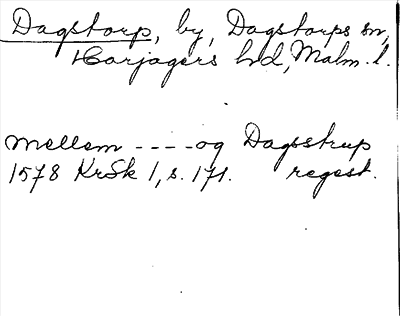 Dagstorp, by, Dagstorps sn,
Harjagers hd, Malm. l.
mellem ---- og Dagstrup
1578 KrSk 1, s. 171. regest.